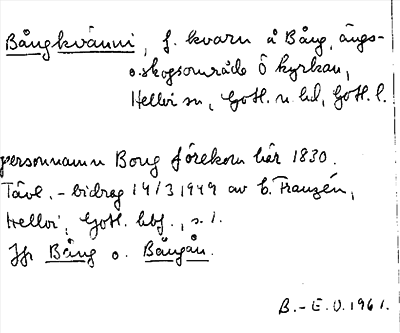 Bångkvänni, f. kvarn å Bång, ängs-
o. skogsområde Ö kyrkan,
Hellvi sn, Gotl. n. hd, Gotl. l.
personnamn Bong förekom här 1830.
Tävl.-bidrag 14/3 1949 av E. Franzén,
Hellvi, Gotl. hbf., s. 1.
Jfr Bång o. Bångån.
B.-E. O. 1961.